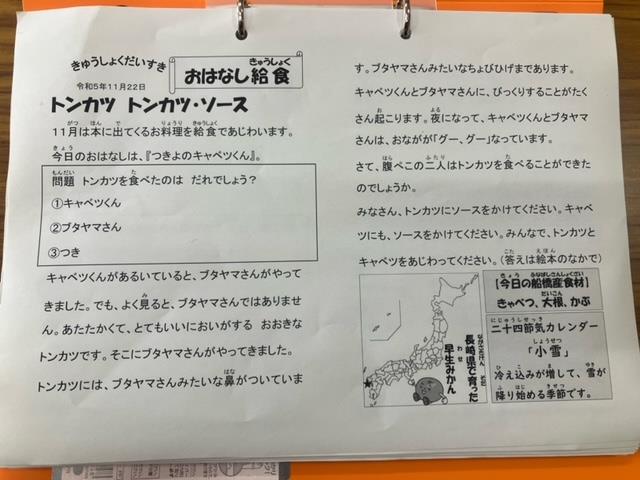 きゅうしょくだいすき
おはなし給食
令和5年11月22日
トンカツ トンカツ・ソース
11月は本に出てくるお料理を給食であじわいます。
今日のおはなしは、『つきよのキャベツくん』。
問題 トンカツを食べたのは だれでしょう?
①キャベツくん
②ブタヤマさん
③つき
キャベツくんがあるいていると、ブタヤマさんがやって
きました。でも、よく見ると、ブタヤマさんではありませ
ん。あたたかくて、とてもいいにおいがする おおきな
トンカツです。そこにブタヤマさんがやってきました。
トンカツには、ブタヤマさんみたいな鼻がついていま
す。ブタヤマさんみたいなちょびひげまであります。
キャベツくんとブタヤマさんに、びっくりすることがたく
さん起こります。夜になって、キャベツくんとブタヤマ
さんは、おながが「グー、グー」なっています。
さて、腹ぺこの二人はトンカツを食べることができた
のでしょうか。
みなさん、トンカツにソースをかけてください。キャベ
ツにも、ソースをかけてください。みんなで、トンカツと
キャベツをあじわってください。(答えは絵本のなかで)
長崎県で育った
早生みかん
【今日の船橋産食材】
きゃべつ、大根、かぶ
二十四節気カレンダー
「小雪」
冷え込みが増して、雪が
降り始める季節です。